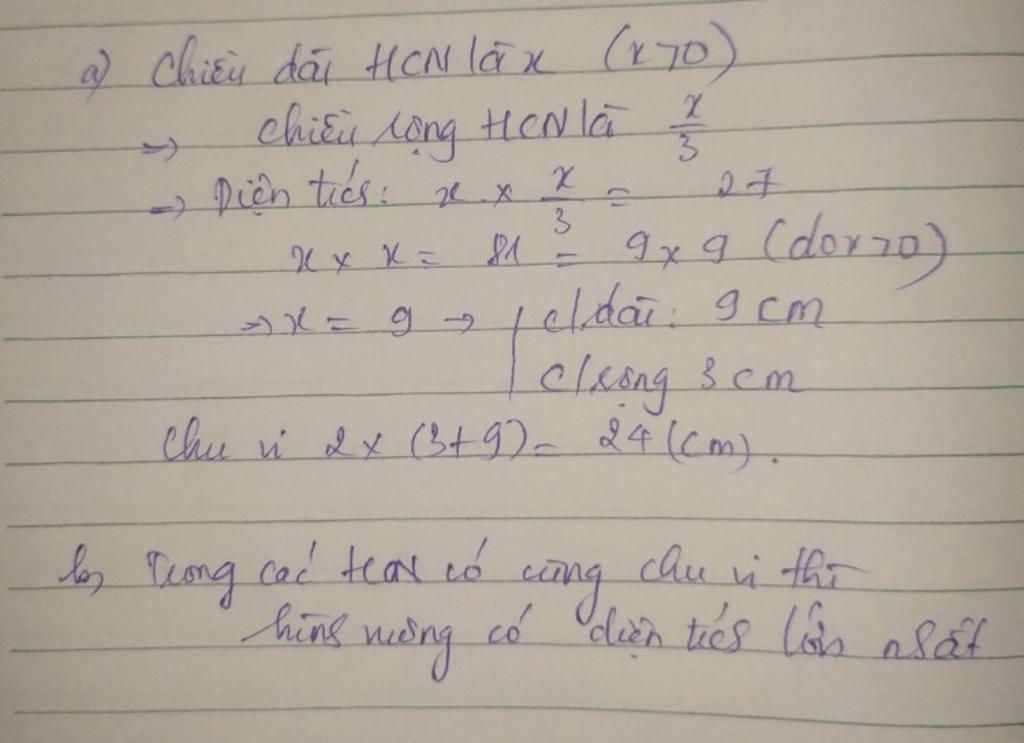 a) Chiều dài HCN là x (x>0)
=> chiều rộng HCN là x/3
=> Diện tích: x × x/3 = 27
x × x = 81 = 9 × 9 (do x>0)
=> x = 9 → | c/dài: 9 cm
c/rộng 3 cm
Chu vi 2 × (3+9) = 24 (cm).
b, Trong các HCN có cùng chu vi thì
hình vuông có diện tích lớn nhất